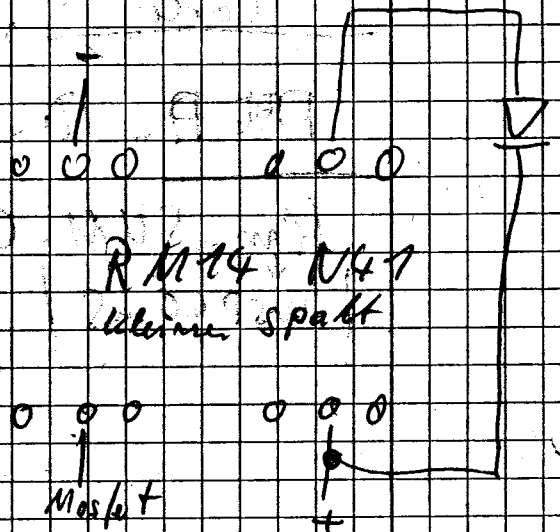 RM14 N41
kleiner spalt
Mosfet
+